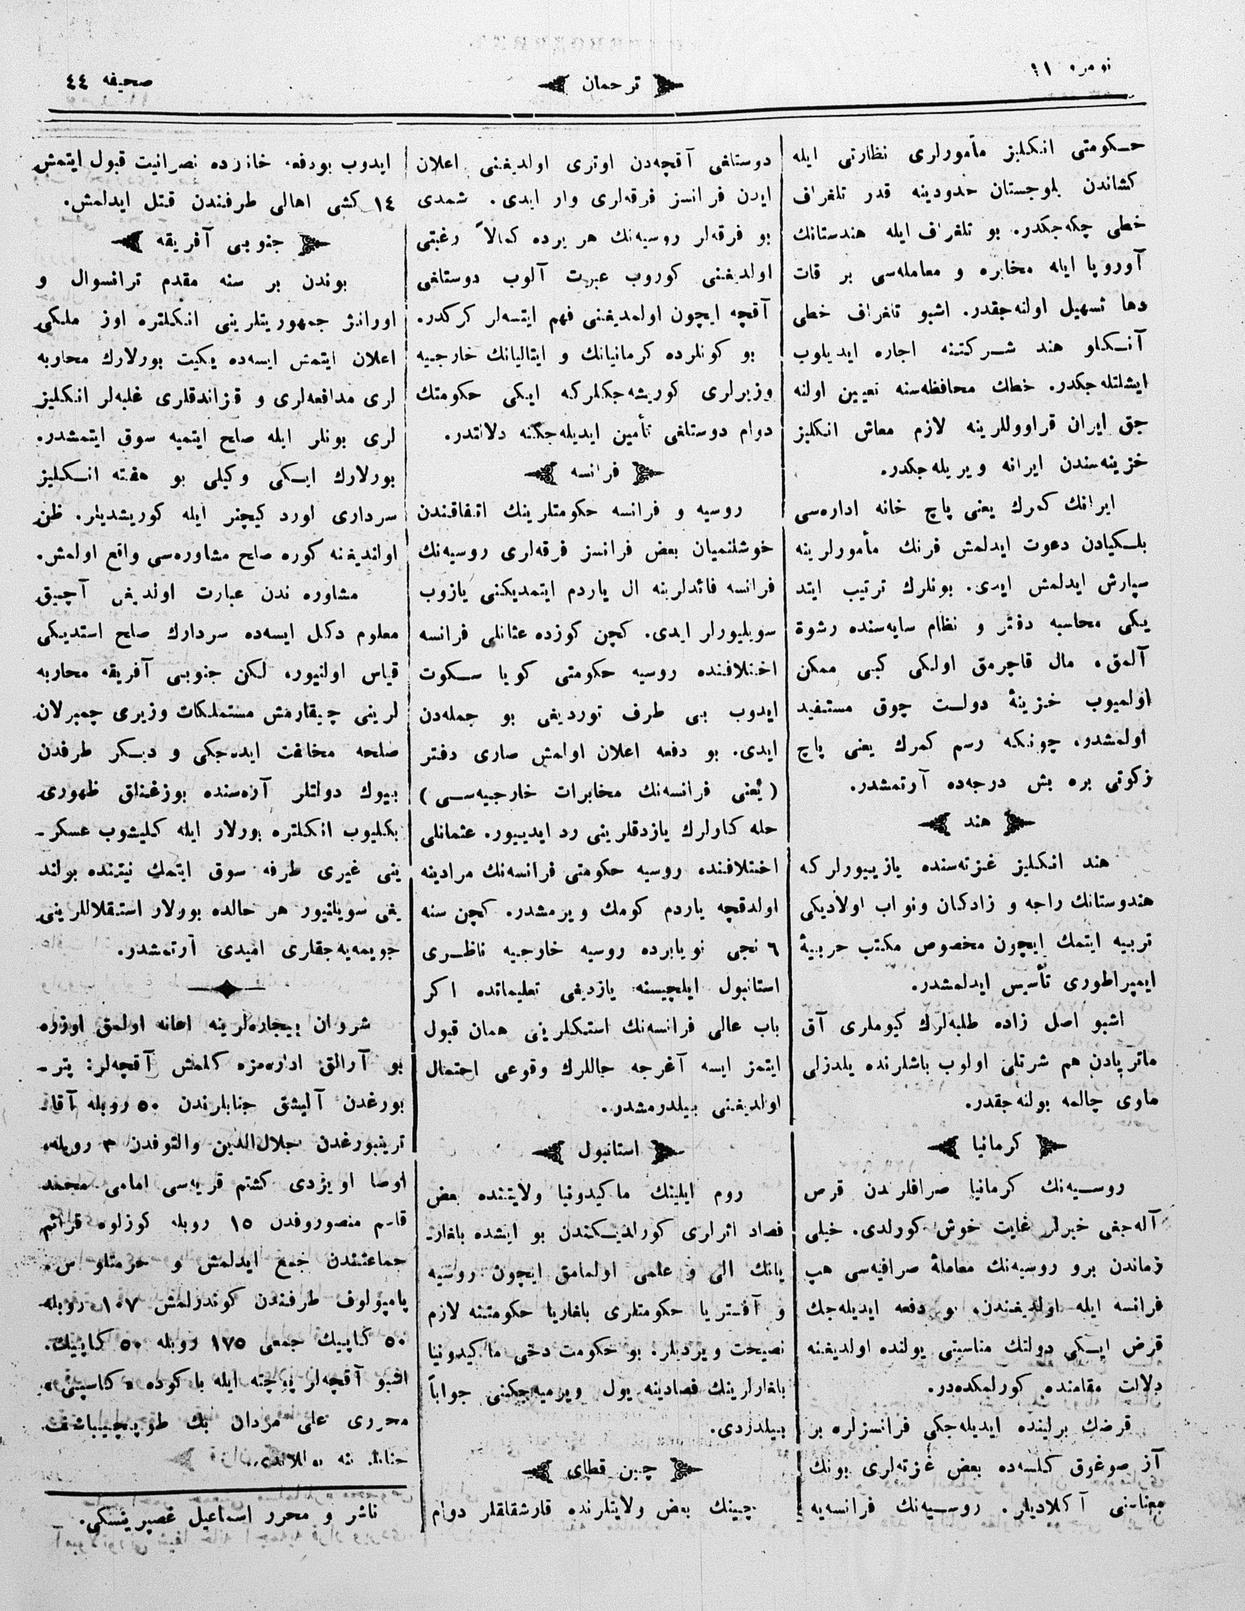 نومره ١١
ترجمان
صحیفه ٤٤
حكومتی انكلیز مأمورلری نظارتی ایله
كشاندن بلوجستان حدودینه قدر تلغراف
خطی چكه‌جكدر. بو تلغراف ایله هندستانك
آوروپا ایله مخابره و معامله‌سی بر قات
دها تسهیل اولنه‌جقدر. اشبو تلغراف خطی
آنكلو هند شركتنه اجاره ایدیلوب
ایشلتله‌جكدر. خطك محافظه‌سنه تعیین اولنه
جق ایران قراووللرینه لازم معاش انكلیز
خزینه‌سندن ایرانه ویریله‌جكدر.
ایرانك كمرك یعنی پاچ خانه اداره‌سی
بلكیادن دعوت ایدلمش فرنك مأمورلرینه
سپارش ایدلمش ایدی. بونلرك ترتیب ایتد
یكی محاسبه دفتر و نظام سایه‌سنده رشوة
آلمق، مال قاچرمق اولكی كبی ممكن
اولمیوب خزینهٔ دولت چوق مستفید
اولمشدر، چونكه رسم كمرك یعنی پاچ
زكوتی بره بش درجه‌ده آرتمشدر.
هند
هند انكلیز غزته‌سنده یازییورلركه
هندوستانك راجه و زادكان ونواب اولادیكی
تربیه ایتمك ایچون مخصوص مكتب حربیهٔ
ایمپراطوری تأسیس ایدلمشدر.
اشبو اصل زاده طلبه‌لرك كیوملری آق
ماتریادن هم شرتلی اولوب باشلرنده یلدزلی
ماوی چالمه بولنه‌جقدر.
كرمانیا
روسیه‌نك كرمانیا صرافلرندن قرض
آله‌جغی خبرلر غایت خوش كورلدی. خیلی
زماندن برو روسیه‌نك معاملهٔ صرافیه‌سی هپ
فرانسه ایله اولدیغندن، بو دفعه ایدیله‌جك
قرض ایكی دولتك مناسبتی یولنده اولدیغنه
دلالت مقامنده كورلمكده‌در.
قرضك برلینده ایدیله‌جكی فرانسزلره بر
آز صوغوق كلسه‌ده بعض غزته‌لری بونك
معناسنی آكلادیلر. روسیه‌نك فرانسه‌یه
دوستلغی آقچه‌دن اوتری اولدیغنی اعلان
ایدن فرانسز فرقه‌لری وار ایدی. شمدی
بو فرقه‌لر روسیه‌نك هر یرده كمالاً رغبتی
اولدیغنی كوروب عبرت آلوب دوستلغی
آقچه ایچون اولمدیغنی فهم ایتسه‌لر كركدر.
بو كونلرده كرمانیانك و ایتالیانك خارجیه
وزیرلری كوریشه‌جكلركه ایكی حكومتك
دوام دوستلغی تأمین ایدیله‌جكنه دلالتدر.
فرانسه
روسیه و فرانسه حكومتلرینك اتفاقندن
خوشلنمیان بعض فرانسز فرقه‌لری روسیه‌نك
فرانسه فائدلرینه ال یاردم ایتمدیكنی یازوب
سویلیورلر ایدی. كچن كوزده عثمانلی فرانسه
اختلافنده روسیه حكومتی كویا سكوت
ایدوب بی طرف توردیغی بو جمله‌دن
ایدی. بو دفعه اعلان اولمش صاری دفتر
(یعنی فرانسه‌نك مخابرات خارجیه‌سی)
حله كارلرك یازدقلرینی رد ایدییور. عثمانلی
اختلافنده روسیه حكومتی فرانسه‌نك مرادینه
اولدقچه یاردم كومك ویرمشدر. كچن سنه
٦ نجی نویابرده روسیه خارجیه ناظری
استانبول ایلچیسنه یازدیغی تعلیماتده اكر
باب عالی فرانسه‌نك استمكلرینی همان قبول
ایتمز ایسه آغرجه حاللرك وقوعی احتمال
اولدیغنی بیلدرمشدر.
استانبول
روم ایلینك ماكیدونیا ولایتنده بعض
فصاد اثرلری كورلدیكندن بو ایشده بلغار-
یانك الی و علمی اولمامق ایچون روسیه
و آفستریا حكومتلری بلغاریا حكومتنه لازم
نصیحت ویردیلر. بو حكومت دخی ماكیدونیا
بلغارلرینك فصادینه یول ویرمیه‌جكنی جواباً
بیلدردی.
چین قطای
چینك بعض ولایتلرنده قارشقلقلر دوام
ایدوب بودفعه خانزده نصرانیت قبول ایتمش
١٤ كشی اهالی طرفندن قتل ایدلمش.
جنوبی آفریقه
بوندن بر سنه مقدم ترانسوال و
اورانژ جمهوریتلرینی انكلتره اوز ملكی
اعلان ایتمش ایسه‌ده یكیت بورلارك محاربه
لری مدافعه‌لری و قزاندقلری غلبه‌لر انكلیز
لری بونلر ایله صلح ایتمیه سوق ایتمشدر.
بورلارك ایكی وكیلی بو هفته انكلیز
سرداری لورد كیچنر ایله كوریشدیلر. ظن
اولندیغنه كوره صلح مشاوره‌سی واقع اولمش.
مشاوره ندن عبارت اولدیغی آچیق
معلوم دكل ایسه‌ده سردارك صلح استدیكی
قیاس اولنیور، لكن جنوبی آفریقه محاربه
لرینی چیقارمش مستملكات وزیری چمبرلان
صلحه مخالفت ایده‌جكی و دیكر طرفدن
بیوك دولتلر آره‌سنده بوزغنلق ظهوری
بكلیوب انكلتره بورلار ایله كلیشوب عسكر-
ینی غیری طرفه سوق ایتمك نیتنده بولند
یغی سویلنیور هر حالده بوورلار استقلاللرینی
جویمه‌یه‌جقلری امیدی آرتمشدر.
شروان بیچاره‌لرینه اعانه اولمق اوزره
بو آرالق اداره‌مزه كلمش آقچه‌لر: پتر-
بورغدن آلیشق جنابلرندن ٥٠ روبله آقا-
ترینبورغدن جلال‌الدین والتوفدن ٣ روبله،
اوصا اویزدی كشتم قریه‌سی امامی محمد
قاسم منصوروفدن ١٥ روبله كوزلوه قرائم
جماعتندن جمع ایدلمش و حرمتلو س.
پامپولوف طرفندن كوندرلمش ١٠٧ روبله
٥٠ كاپیك جمعی ١٧٥ روبله ٥٠ كاپیك.
اشبو آقچه‌لر پوچته ایله باكوده «كاسپی»
محرری علی مردان بك طوپچیباشف
جنابلرینه یوللاندی.
ناشر و محرر اسماعیل غصپرینسكی.